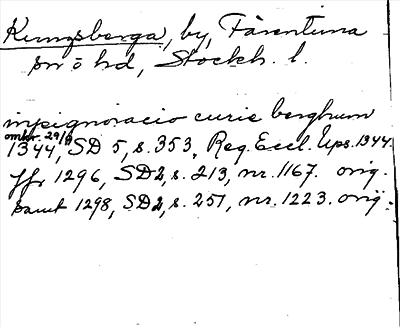 Kungsberga, by, Färentuna
sn o hd, Stockh. l.
inpignoracio curie berghum
omkr. 29/9
1344, SD 5, s. 353, Reg. Eccl. Ups. 1344.
Jfr 1296, SD2, s. 213, nr. 1167. orig.
samt 1298, SD2, s. 251, nr. 1223. orig.